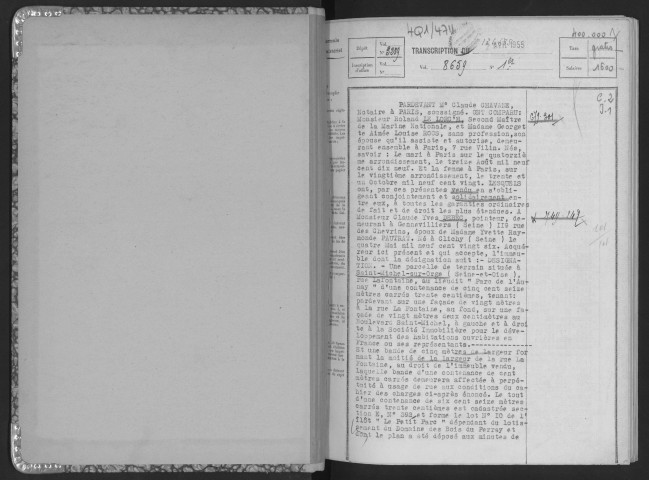 4Q1/474
TRANSCRIPTION DU
Vol. 8659 N° 1
Taxe
Salaire 1500
C.2
J.1
PARDEVANT Me Claude CHAVANE,
Notaire à PARIS, soussigné. ONT COMPARU:
Monsieur Roland LE Second Maître
de la Marine Nationale, et Madame Georget
te Aimée Louise ROOS, sans profession, son
épouse qu'il assiste et autorise, demeu-
rant ensemble à Paris, 7 rue Vilin. Nés,
savoir : Le mari à Paris sur le quatorziè
me arrondissement, le treize Août mil neuf
cent dix neuf. Et la femme à Paris, sur
le vingtième arrondissement, le trente et
un Octobre mil neuf cent vingt. LESQUELS
ont, par ces présentes vendu en s'obli-
geant conjointement et solidairement en-
tre eux, à toutes les garanties ordinaires
de fait et de droit les plus étendues. A
Monsieur Claude Yves pointeur, de-
meurant à Gennevilliers ( Seine ) 118 rue
des Chevrins, époux de Madame Yvette Ray-
monde PAUVRAS. Né à Clichy ( Seine ) le
quatre Mai mil neuf cent vingt six. Acqué-
reur ici présent et qui accepte, l'immeu-
ble dont la désignation suit :- DESIGNA-
TION. - Une parcelle de terrain située à
Saint-Michel-sur-Orge ( Seine-et-Oise ),
rue Lafontaine, au lieudit " Parc de l'Au-
nay " d'une contenance de cinq cent seize
mètres carrés trente centièmes, tenant:
pardevant sur une façade de vingt mètres
à la rue La Fontaine, au fond, sur une fa-
çade de vingt mètres deux centimètres au
Boulevard Saint-Michel, à gauche et à droi
te à la Société Immobilière pour le déve-
loppement des habitations ouvrières en
France ou ses représentants.-----------
Et une bande de cinq mètres de largeur for
mant la moitié de la largeur de la rue La
Fontaine, au droit de l'immeuble vendu,
laquelle bande d'une contenance de cent
mètres carrés demeurera affectée à perpé-
tuité à usage de rue aux conditions du ca-
hier des charges ci-après énoncé. Le tout
d'une contenance de six cent seize mètres
carrés trente centièmes est cadastré sec-
tion E, N° 388 et forme le lot N° 10 de l'
îlôt " Le Petit Parc " dépendant du lotis-
sement du Domaine des Bois du Perray et
dont le plan a été déposé aux minutes de